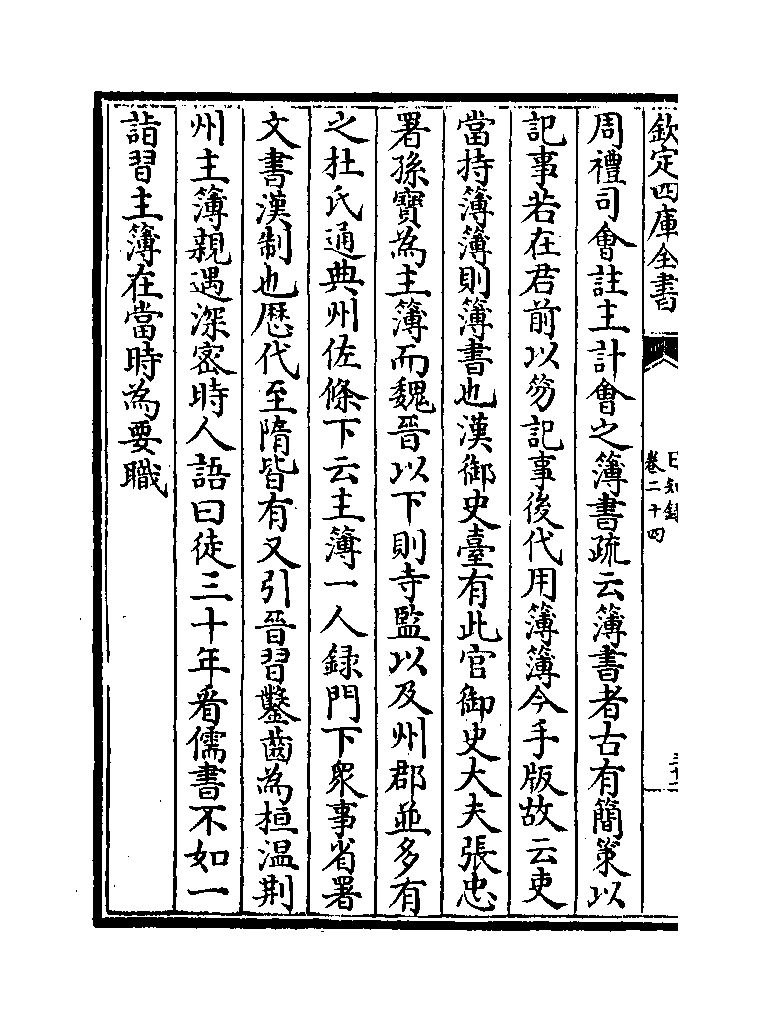 欽定四庫全書
卷二十四
周禮司會註主計會之簿書疏云簿書者古有簡策以
記事若在君前以笏記事後代用簿簿今手版故云吏
當持簿簿則簿書也漢御史臺有此官御史大夫張忠
署孫寶為主簿而魏晉以下則寺監以及州郡並多有
之杜氏通典州佐條下云主簿一人録門下衆事省署
文書漢制也歴代至隋皆有又引晉習鑿齒為桓温荆
州主簿親遇深密時人語曰徒三十年看儒書不如一
詣習主簿在當時為要職